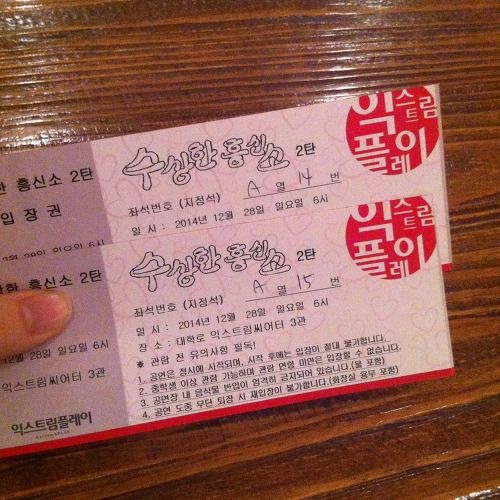 한 흥신소 2탄
입장권
수상한 흥신소 2탄
좌석번호 (지정석) A 열 14 번
일 시 : 2014년 12월 28일 일요일 6시
익스트림
플레이
수상한 흥신소 2탄
좌석번호 (지정석) A 열 15 번
일 시 : 2014년 12월 28일 일요일 6시
장 소 : 대학로 익스트림씨어터 3관
※ 관람 전 유의사항 필독!
1. 공연은 정시에 시작되며, 시작 후에는 입장이 절대 불가합니다.
2. 중학생 이상 관람 가능하며 관람 연령 미만은 입장할 수 없습니다.
3. 공연장 내 음식물 반입이 엄격히 금지되어 있습니다.(물 포함)
4. 공연 도중 무단 퇴장 시 재입장이 불가합니다.(화장실 용무 포함)
익스트림
플레이
한 흥신소 2탄
장권
12월 28일 일요일 6시
익스트림씨어터 3관
익스트림플레이